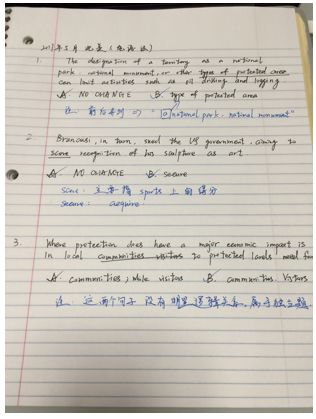 2017年5月 北美 (
1. The designation of a territory as a national
park, national monument, or other types of protected area
can limit activities such as oil drilling and logging
A. NO CHANGE B. type of protected area
注: 前后并列 => "a national park, national monument"
2. Brancusi, in turn, sued the US government, aiming to
score recognition of his sculpture as art.
A. NO CHANGE B. secure
Score: 主要指 sports 上的得分
secure: acquire
3. Where protection does have a major economic impact is
in local communities visitors to protected lands need
A. communities; while visitors B. communities. Visitors
注: 这两个句子 没有明显逻辑关系, 属于独立